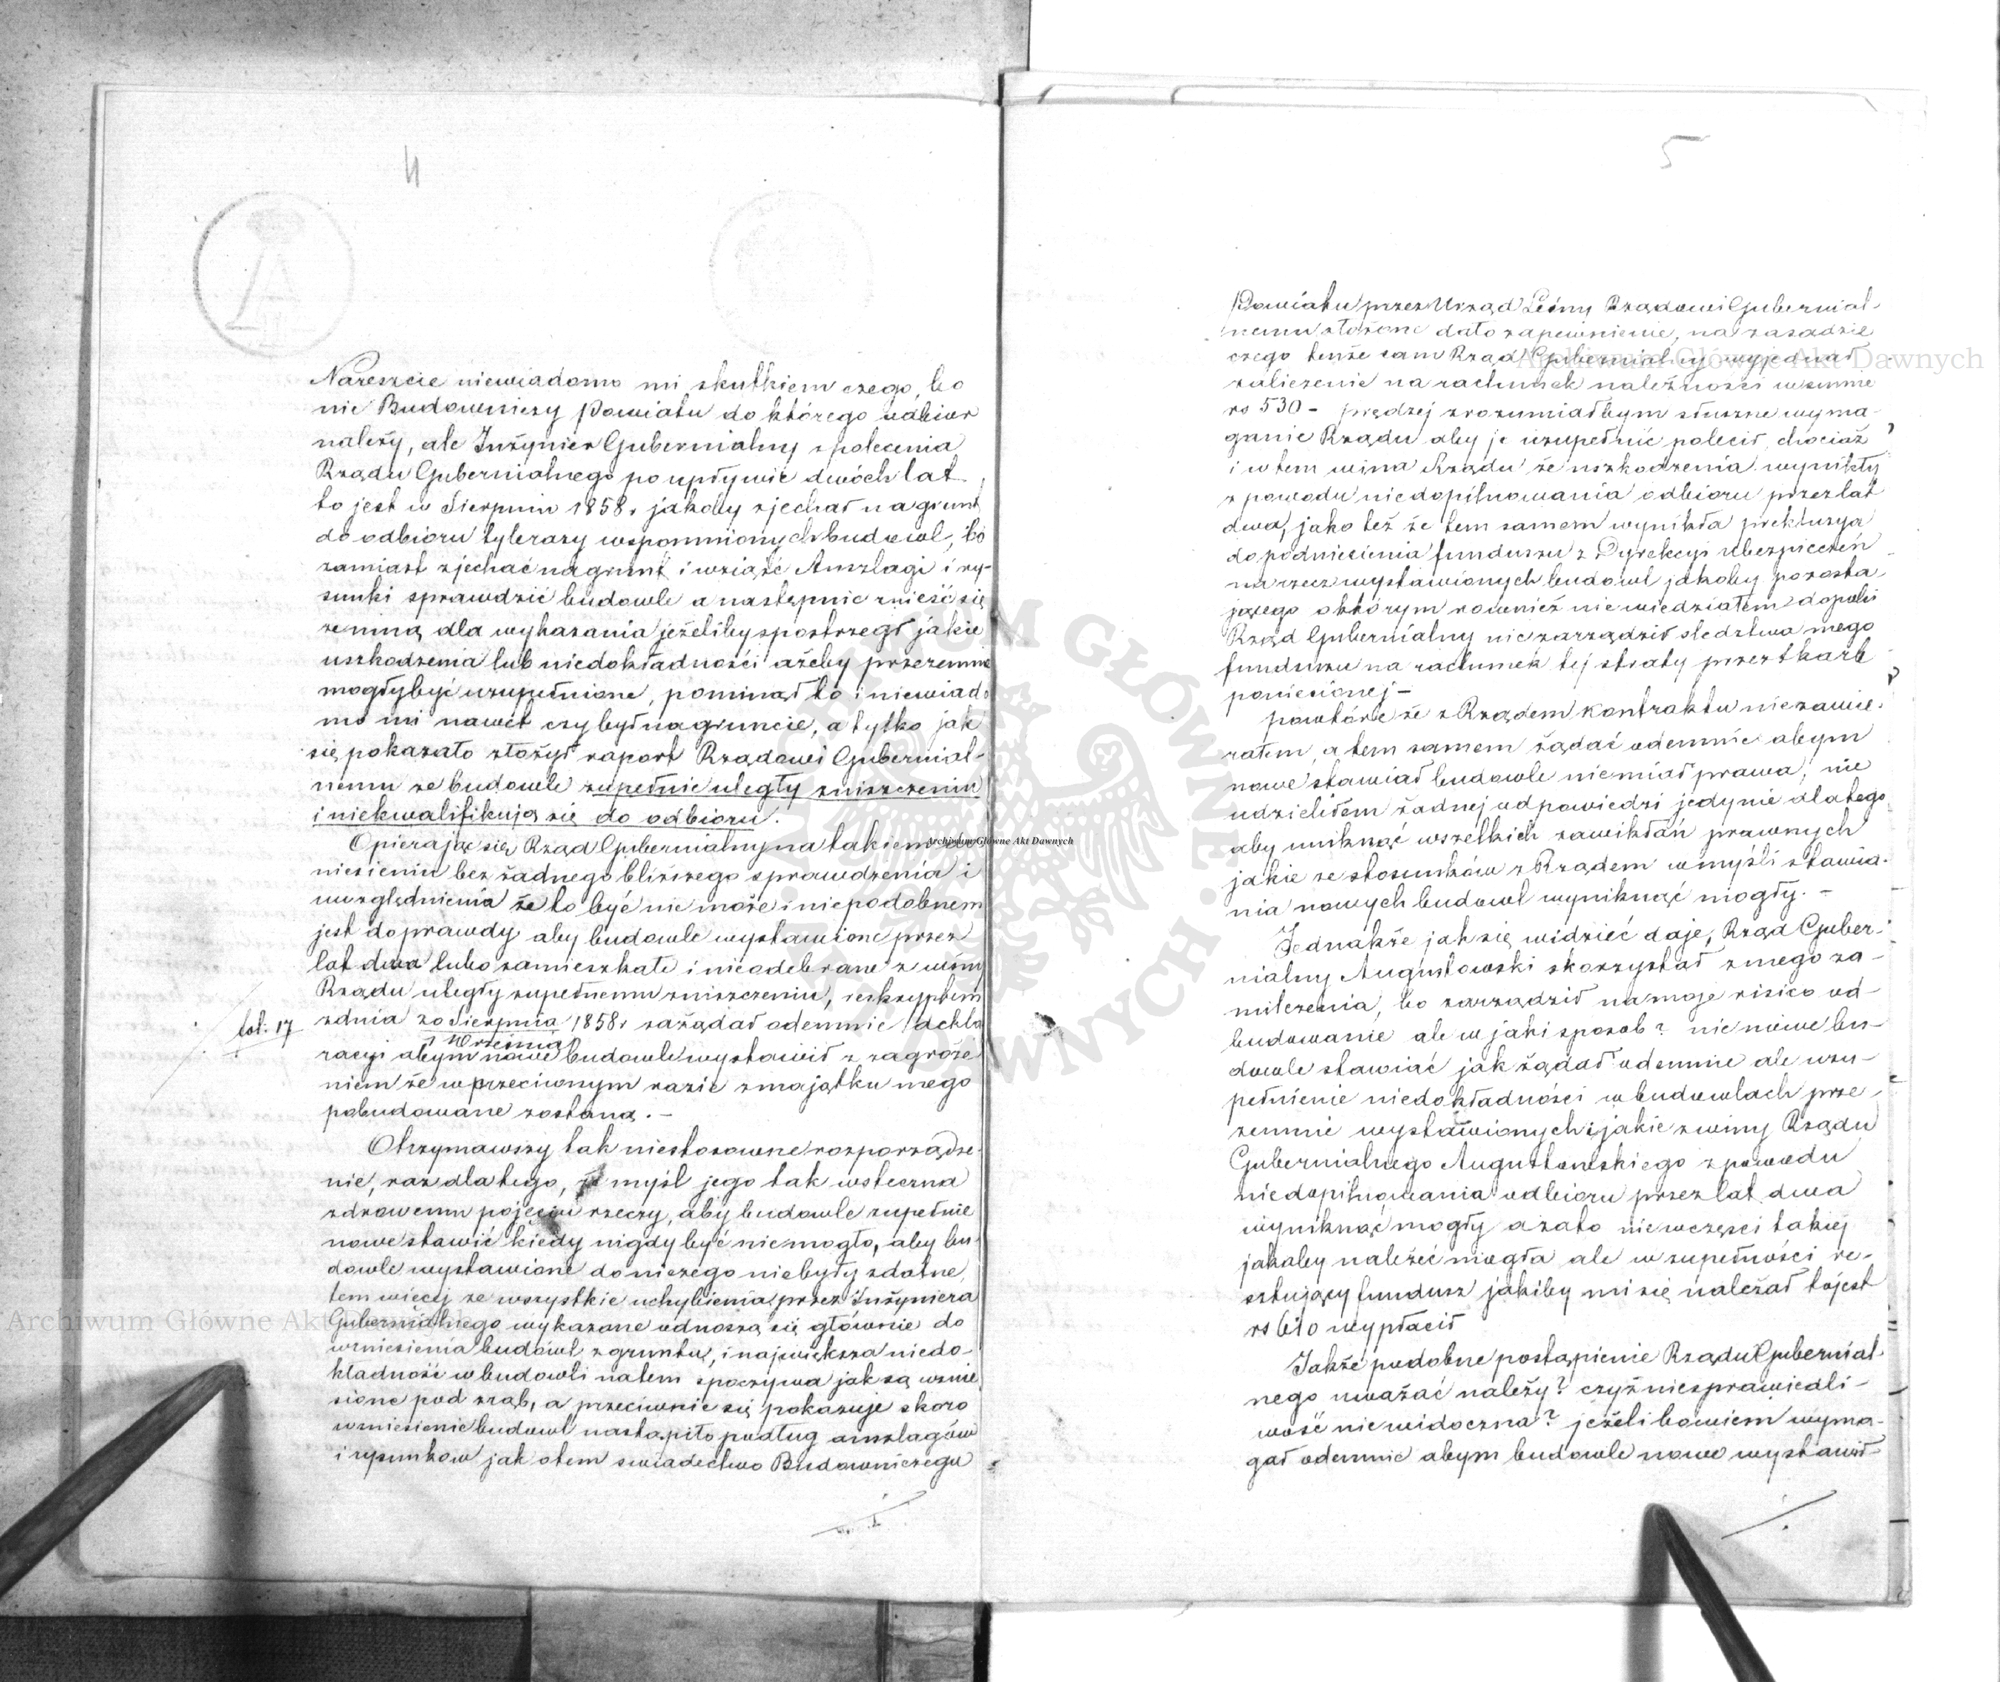 4
Nareszcie niewiadomo mi skutkiem czego, bo
nie Budowniczy Powiatu do którego odbior
należy, ale Inżynier Gubernialny z polecenia
Rządu Gubernialnego po upływie dwóch lat
to jest w Sierpniu 1858 r jakoby zjechał na grunt
do odbioru tylerazy wspomnionych budowl, bo
zamiast zjechać na grunt i wziąść Anszlagi i ry-
sunki sprawdzić budowle a następnie znieść się
zemną dla wykazania jeżeliby spostrzegł jakie
uszkodzenia lub niedokładności ażeby przezemnie
mogły być uzupełnione, pominął to i niewiado
mo mi nawet czy był na gruncie, a tylko jak
się pokazało złożył raport Rządowi Gubernial-
nemu że budowle zupełnie uległy zniszczeniu
i niekwalifikują się do odbioru.
Opierając się Rząd Gubernialny na takiem
niesieniu bez żadnego bliższego sprawdzenia i
uwzględnienia że to być nie może i niepodobnem
jest do prawdy aby budowle wystawione przez
lat dwa lubo zamieszkałe i nieodebrane z winy
Rządu uległy zupełnemu zniszczeniu, reskryptem
zdnia 20 Sierpnia 1858 r zażądał odemnie dekla
fol: 17
Września
racyi abym nowe budowle wystawił z zagroże
niem że w przeciwnym razie z majątku mego
pobudowane zostaną. —
Otrzymawszy tak niestosowne rozporządze-
nie, raz dlatego, że myśl jego tak wsteczna
zdrowemu pojęciu rzeczy, aby budowle zupełnie
nowe stawić kiedy nigdy być niemogło, aby bu-
dowle wystawione do niczego niebyły zdatne,
tem więcej że wszystkie uchybienia przez Inżyniera
Gubernialnego wykazane odnoszą się głównie do
wzniesienia budowl z gruntu, i największa niedo-
kładność w budowli na tem spoczywa jak są wznie
sione pod zrąb, a przeciwnie się pokazuje skoro
wzniesienie budowl nastąpiło podług anszlagów
i rysunkow jak otem swiadectwo Budowniczego
5
Powiatu przez Urząd Leśny Rządowi Gubernial-
nemu złożone dało zapewnienie, na zasadzie
czego tenże sam Rząd Gubernialny wyjednał
zaliczenie na rachunek należności w summie
rs 530 – prędzej zrozumiałbym słuszne wyma-
ganie Rządu aby je uzupełnić polecił, chociaż
i w tem wina Rządu że uszkodzenia wynikły
z powodu niedopilnowania odbioru przez lat
dwa, jako też że tem samem wynikła prekluzya
do podniesienia funduszu z Dyrekcyi ubezpieczeń
na rzecz wystawionych budowl jakoby pozosta-
jącego o którym rownież nie wiedziałem dopóki
Rząd Gubernialny nie zarządził sledztwa mego
funduszu na rachunek tej straty przez Skarb
poniesionej —
powtóre że z Rządem kontraktu niezawie-
rałem, a tem samem żądać odemnie abym
nowe stawiał budowle niemiał prawa, nie
udzieliłem żadnej odpowiedzi jedynie dlatego
aby uniknąć wszelkich zawikłań prawnych
jakie ze stosunków z Rządem w myśli stawia-
nia nowych budowl wyniknąć mogły. —
Jednakże jak się widzieć daje, Rząd Guber-
nialny Augustowski skorzystał z mego za-
milczenia, bo zarządził na moje risico od-
budowanie ale w jaki sposob? nie nowe bu-
dowle stawiać jak żądał odemnie ale uzu-
pełnienie niedokładności w budowlach prze-
zemnie wystawionych jakie z winy Rządu
Gubernialnego Augustowskiego z powodu
niedopilnowania odbioru przez lat dwa
wyniknąć mogły a zato nie w części takiej
jakaby należeć mogła ale w zupełności re-
sztujący fundusz jakiby mi się należał tojest
rs 610 wypłacił
Jakże podobne postąpienie Rządu Gubernial-
nego uważać należy? czyż niesprawiedli-
wość nie widoczna? jeżeli bowiem wyma-
gał odemnie abym budowle nowe wystawił
Archiwum Główne Akt Dawnych
Archiwum Główne Akt Dawnych